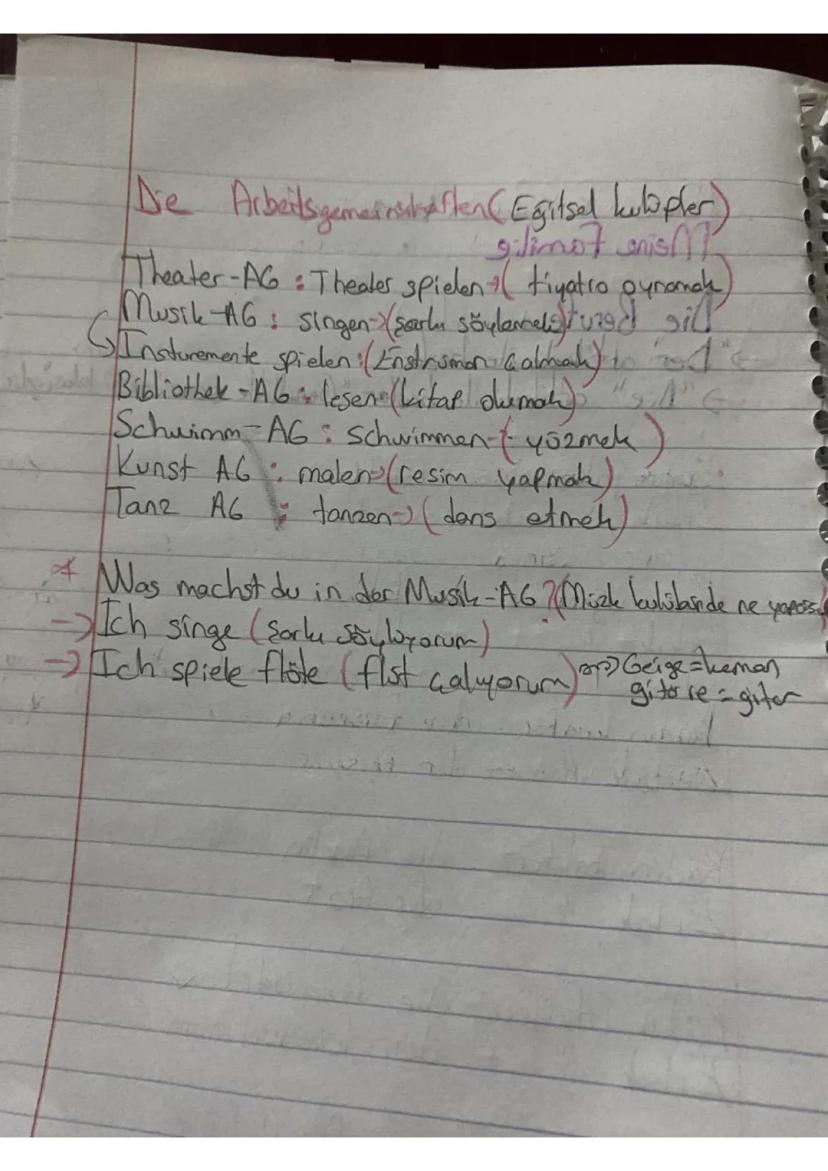 Die Arbeitsgemeinschaften (Eğitsel kulüpler)
Theater-AG : Theater spielen → ( tiyatro oynamak )
Musik-AG : singen → (şarkı söylemek)
Insturemente spielen : (Enstrüman çalmak)
Bibliothek-AG : lesen (kitap okumak)
Schwimm-AG : schwimmen → ( yüzmek )
Kunst AG : malen → (resim yapmak)
Tanz AG : tanzen → ( dans etmek )
* Was machst du in der Musik-AG ? (Müzik kulübünde ne
→ Ich singe (şarkı söylüyorum)
→ Ich spiele flöte ( flüt çalıyorum) Geige = keman
gitarre = gitar